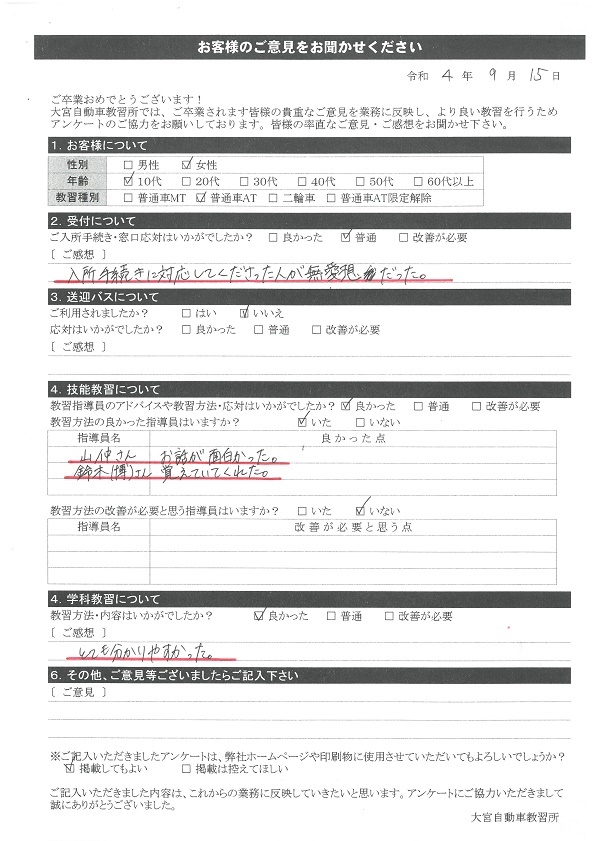 お客様のご意見をお聞かせください
令和 4 年 9 月 15 日
ご卒業おめでとうございます!
大宮自動車教習所では、ご卒業されます皆様の貴重なご意見を業務に反映し、より良い教習を行うため
アンケートのご協力をお願いしております。皆様の率直なご意見・ご感想をお聞かせ下さい。
1. お客様について
性別 □ 男性 ☑ 女性
年齢 ☑ 10代 □ 20代 □ 30代 □ 40代 □ 50代 □ 60代以上
教習種別 □ 普通車MT ☑ 普通車AT □ 二輪車 □ 普通車AT限定解除
2. 受付について
ご入所手続き・窓口応対はいかがでしたか? □ 良かった ☑ 普通 □ 改善が必要
[ ご感想 ]
入所手続きに対応してくださった人が無愛想だった。
3. 送迎バスについて
ご利用されましたか? □ はい ☑ いいえ
応対はいかがでしたか? □ 良かった □ 普通 □ 改善が必要
[ ご感想 ]
4. 技能教習について
教習指導員のアドバイスや教習方法・応対はいかがでしたか? ☑ 良かった □ 普通 □ 改善が必要
教習方法の良かった指導員はいますか? ☑ いた □ いない
指導員名 良かった点
山仲さん お話が面白かった。
鈴木(博)さん 覚えていてくれた。
教習方法の改善が必要と思う指導員はいますか? □ いた ☑ いない
指導員名 改善が必要と思う点
4. 学科教習について
教習方法・内容はいかがでしたか? ☑ 良かった □ 普通 □ 改善が必要
[ ご感想 ]
とても分かりやすかった。
6. その他、ご意見等ございましたらご記入下さい
[ ご意見 ]
※ご記入いただきましたアンケートは、弊社ホームページや印刷物に使用させていただいてもよろしいでしょうか?
☑ 掲載してもよい □ 掲載は控えてほしい
ご記入いただきました内容は、これからの業務に反映していきたいと思います。アンケートにご協力いただきまして
誠にありがとうございました。
大宮自動車教習所